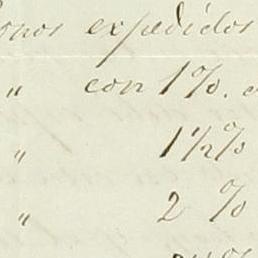 onos expedidos
" con 1%.
" 1½%
" 2 %